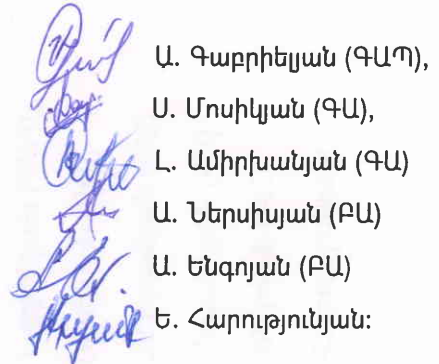 Ա. Գաբրիելյան (ԳԱՊ),
Ս. Մոսիկյան (ԳԱ),
Լ. Ամիրխանյան (ԳԱ)
Ա. Ներսիսյան (ԲԱ)
Ա. Ենգոյան (ԲԱ)
Ե. Հարությունյան: